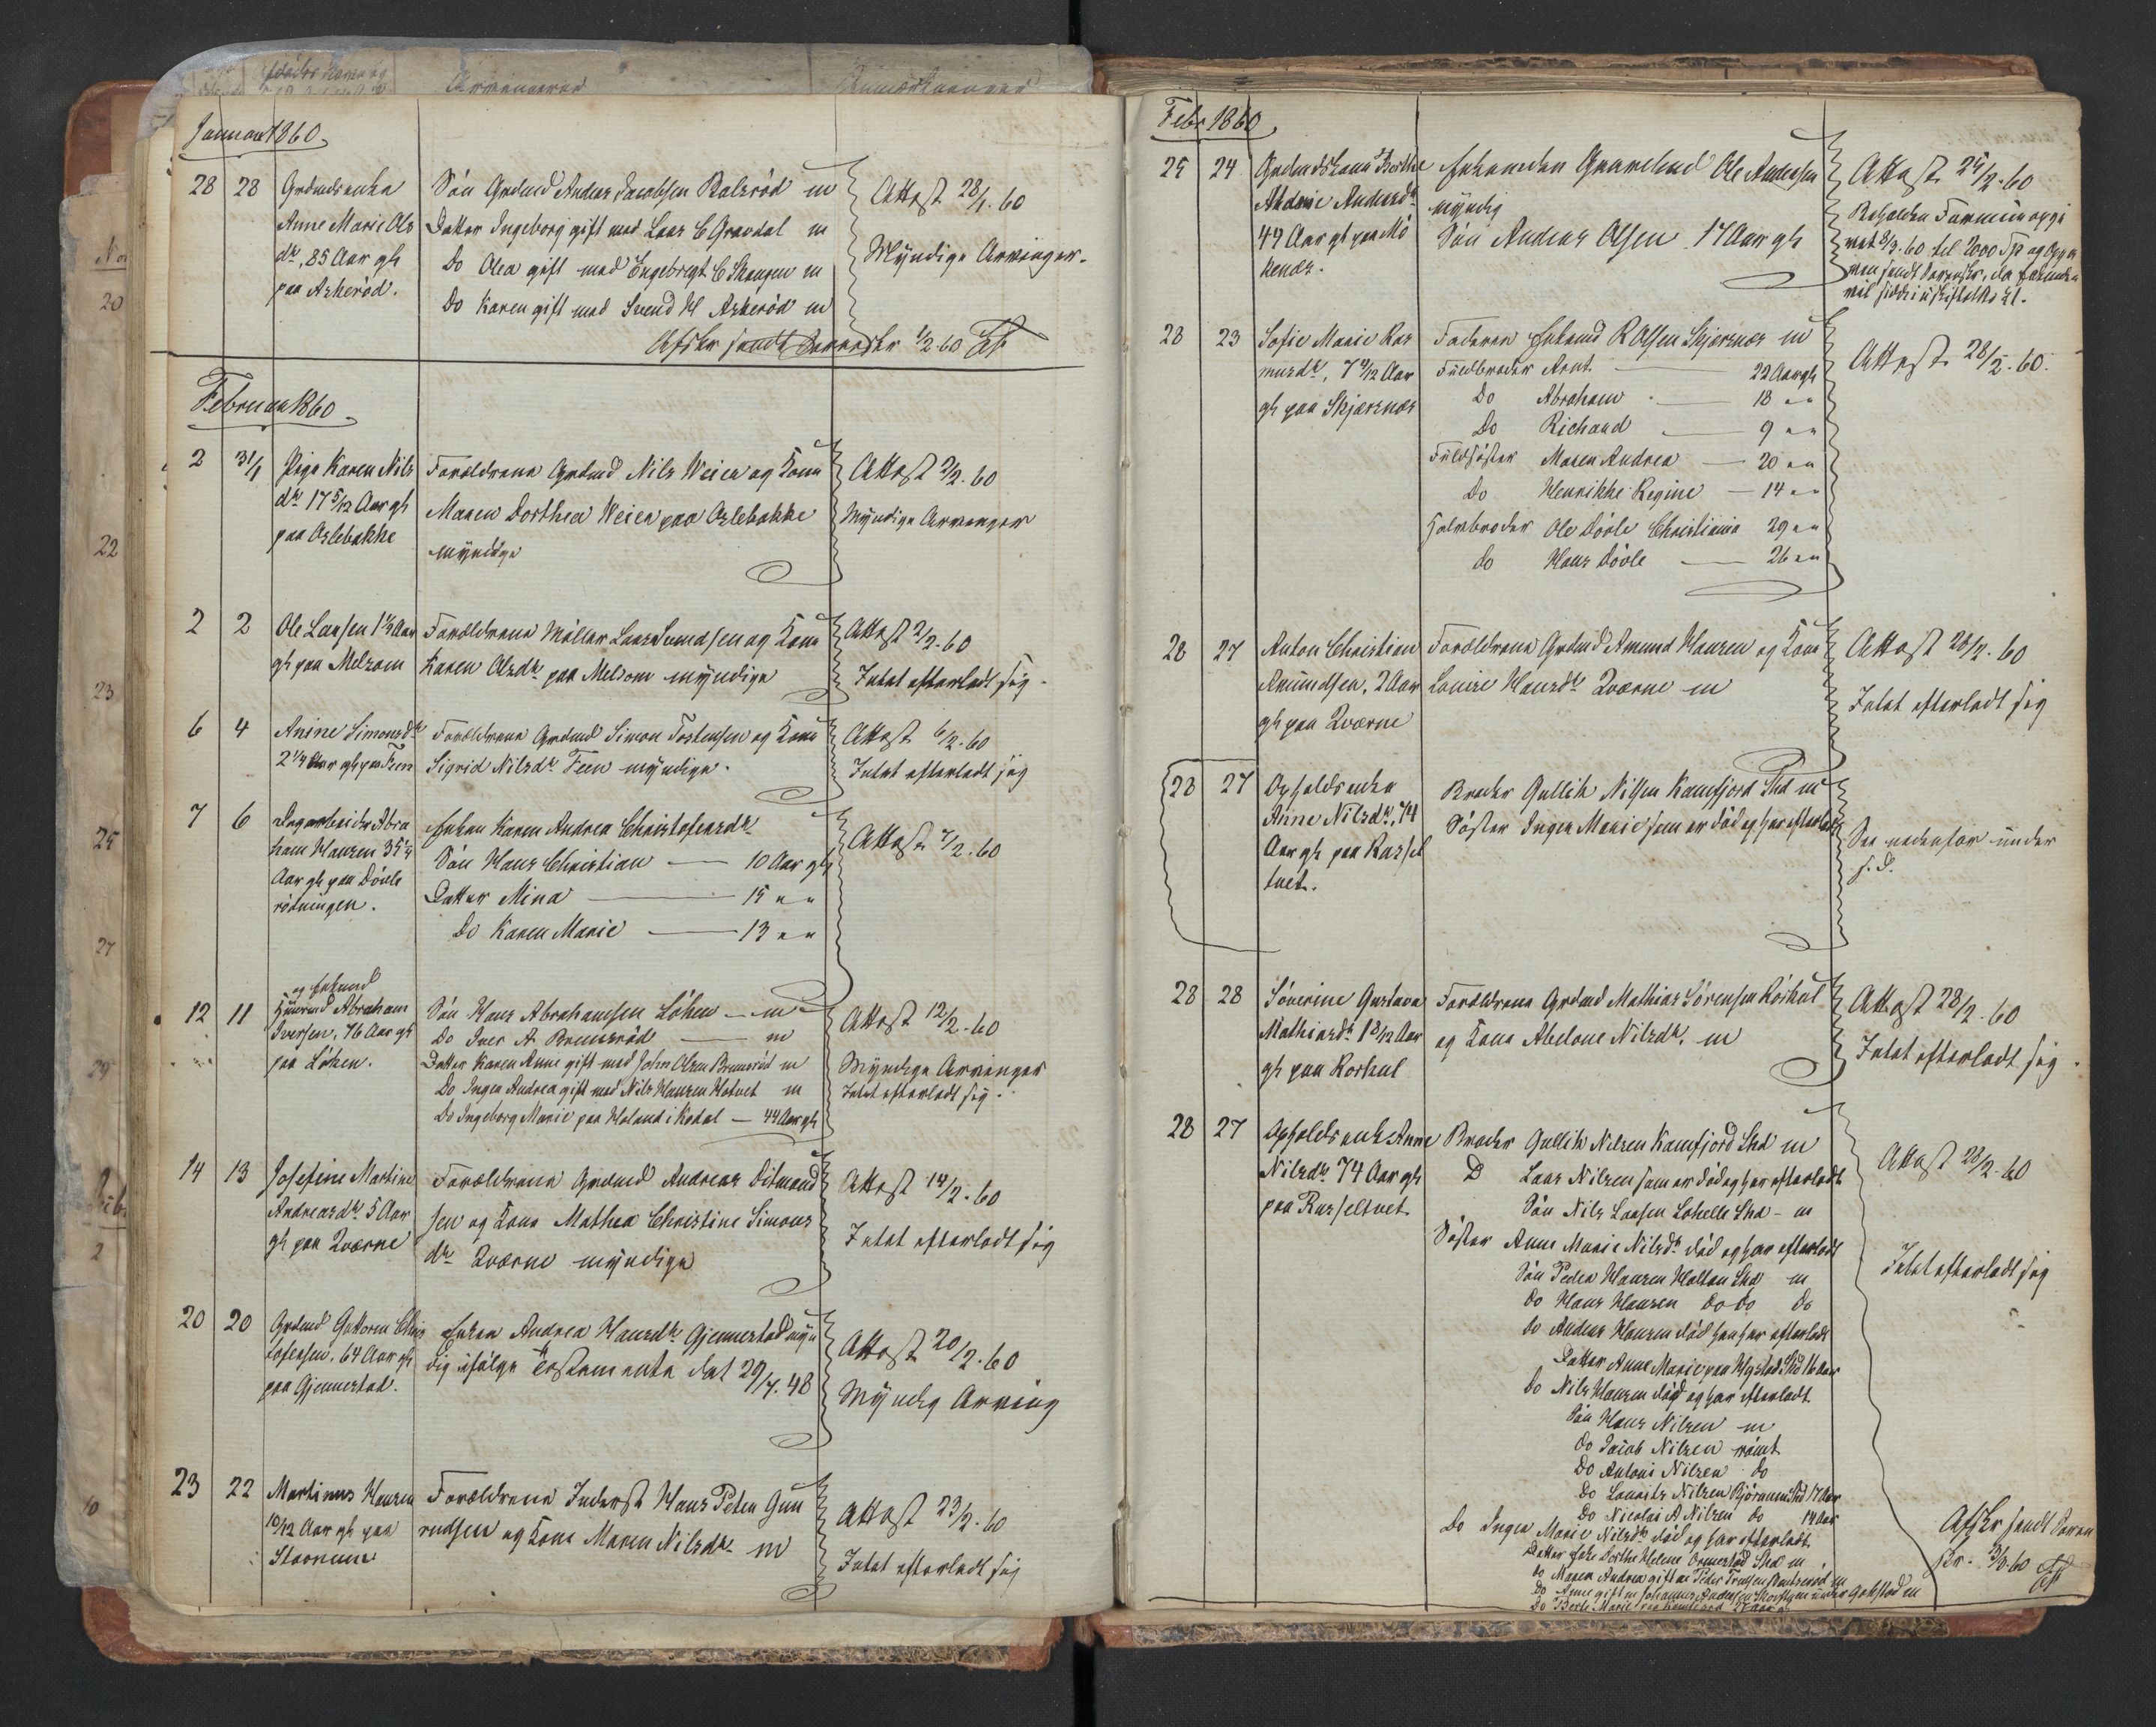 Januar 1860.
28 28 Grdmdsenke
Anne Marie Ols
dr, 85 Aar gl
paa Askerød.
Søn Grdmd Andors Jacobsen Valsrød m
Datter Ingeborg gift med Lars C Gravdal m
Do Olea gift med Engebregt C Skaugen m
Do Karen gift med Svend H Askerød m
Attest 28/1. 60
Myndige Arvinger.
Afskr sendt Sorenskr 1/2 60
Februar 1860
2 31/1 Pige Karen Nils
dr 17 5/12 Aar gl
paa Oslebakke
Forældrene Grdmd Nils Weier og Kone
Maren Dorthea Weier paa Oslebakke
myndige
Attest 2/2. 60
Myndige Arvinger
2 2 Ole Larsen 1 1/2 Aar
gl paa Melsom
Forældrene Møller Lars Svendsen og Kone
Karen Olsdr paa Melsom myndige
Attest 2/2. 60
Intet efterladt sig.
6 4 Anine Simonsdr
2 1/4 Aar gl paa Feen
Forældrene Grdmd Simon Tostensen og Kone
Sigrid Nilsdr Feen myndige.
Attest 6/2. 60
Intet efterladt sig
7 6 Dagarbeider Abra
ham Hansen 35 1/4
Aar gl paa Døvle
rødningen.
Enken Karen Andrea Christofersdr
Søn Hans Christian — 10 Aar gl
Datter Mina — 15 " "
Do Karen Marie — 13 " "
Attest 7/2. 60
og Enkemd
12 11 Huusmd Abraham
Iversen, 76 Aar gl
paa Løken.
Søn Hans Abrahamsen Løken — m
Do Iver A Brunsrød — m
Datter Karen Anne gift med John Olsen Brunsrød m
Do Inger Andrea gift med Nils Hansen Hotvet m
Do Ingeborg Marie paa Holand i Kodal — 44 Aar gl
Attest 12/2. 60
Myndige Arvinger
Intet efterladt sig.
14 13 Josefine Martine
Andreasdr 5 Aar
gl paa Qværne
Forældrene Grdmd Andreas Ditmand
sen og Kone Mathea Christine Simons
dr Qværne myndige
Attest 14/2. 60
Intet efterladt sig
20 20 Grdmd Guttorm Chris
tofersen, 64 Aar gl
paa Gjennestad.
Enken Andrea Hansdr Gjennestad myn
dig ifølge Testamente dat 29/7. 48
Attest 20/2. 60
Myndig Arving
23 22 Martinus Hansen
10/12 Aar gl paa
Forældrene Inderst Hans Peter Gun
rudsen og Kone Maren Nilsdr m
Attest 23/2. 60
Intet efterladt sig
Febr 1860
25 24 Grdmdskone Berthe
Andersdr
49 Aar gl paa
Enkemanden Ole Andersen
myndig
Søn Andreas Olsen 17 Aar gl
Attest 25/2. 60
28 23 Sofie Marie Ras
musdr, 7 9/12 Aar
gl paa Skjærsnes
Faderen Enkemd R Olsen Skjærsnes m
Fuldbroder Arnt — 22 Aar gl
Do Abraham — 18 " "
Do Richard — 9 " "
Fuldsøster Maren Andrea — 20 " "
Do Henrikke Regine — 14 " "
Halvbroder Ole Døvle Christiania 29 " "
do Hans Døvle — 26 " "
Attest 28/2. 60.
28 27 Anton Christian
Amundsen, 2 Aar
gl paa Qværne
Forældrene Grdmd Amund Hansen og Kone
Louise Hansdr Qværne m
Attest 28/2. 60
Intet efterladt sig
28 27 Opholdsenke
Anne Nilsdr, 74
Aar gl paa Rossel
tvet.
Broder Gullik Nilsen Kamfjord Shd m
Søster Inger Marie som er død og har efterladt
See nedenfor under
s. D.
28 28 Severine Gustava
Mathiasdr 1 8/12 Aar
gl paa Korhul
Forældrene Grdmd Mathias Sørensen Korhul
og Kone Abelone Nilsdr. m
Attest 28/2. 60
Intet efterladt sig.
28 27 Opholdsenke Anne
Nilsdr 74 Aar gl
paa Rosseltvet
Broder Gullik Nilsen Kamfjord Shd m
D Lars Nilsen som er død og har efterladt
Søn Nils Larsen Lohelle Shd - m
Søster Anne Marie Nilsdr død og har efterladt
Søn Peder Hansen Holtan Shd m
do Hans Hansen do do do
do Andreas Hansen død han har efterladt
Datter Anne Marie paa Hystad Shd 16 Aar
do Nils Hansen død og har efterladt
Søn Hans Nilsen m
do Jacob Nilsen rømt
Do Antoni Nilsen do
Do Lauritz Nilsen Bjørnum Shd 17 Aar
Do Nicolai A Nilsen do 14 Aar
Do Inger Marie Nilsdr død og har efterladt
Datter Enke Dorthe Helene Ormestad Shd m
do Maren Andrea gift m Peder
Do Anne gift m Johannes Andersen under Gokstad m
Do Berte Marie paa Kamfjord
Attest 28/2. 60
Intet efterladt sig
Afskr sendt Soren
skr.